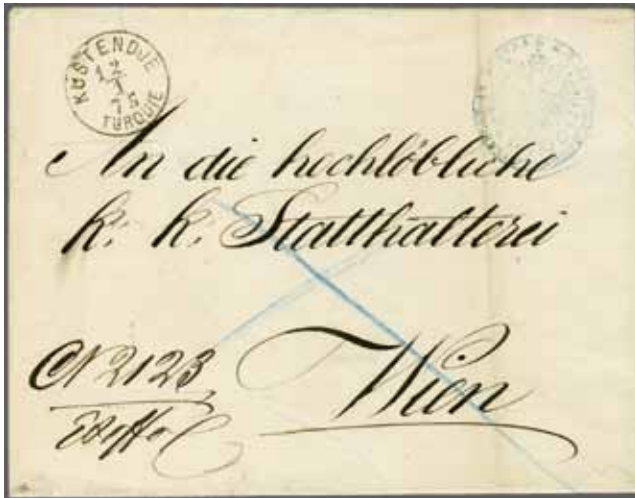 KÜSTENDJE
12
1
75
TURQUIE
An die hochlöbliche
k. k. Statthalterei
N 2123
Wien